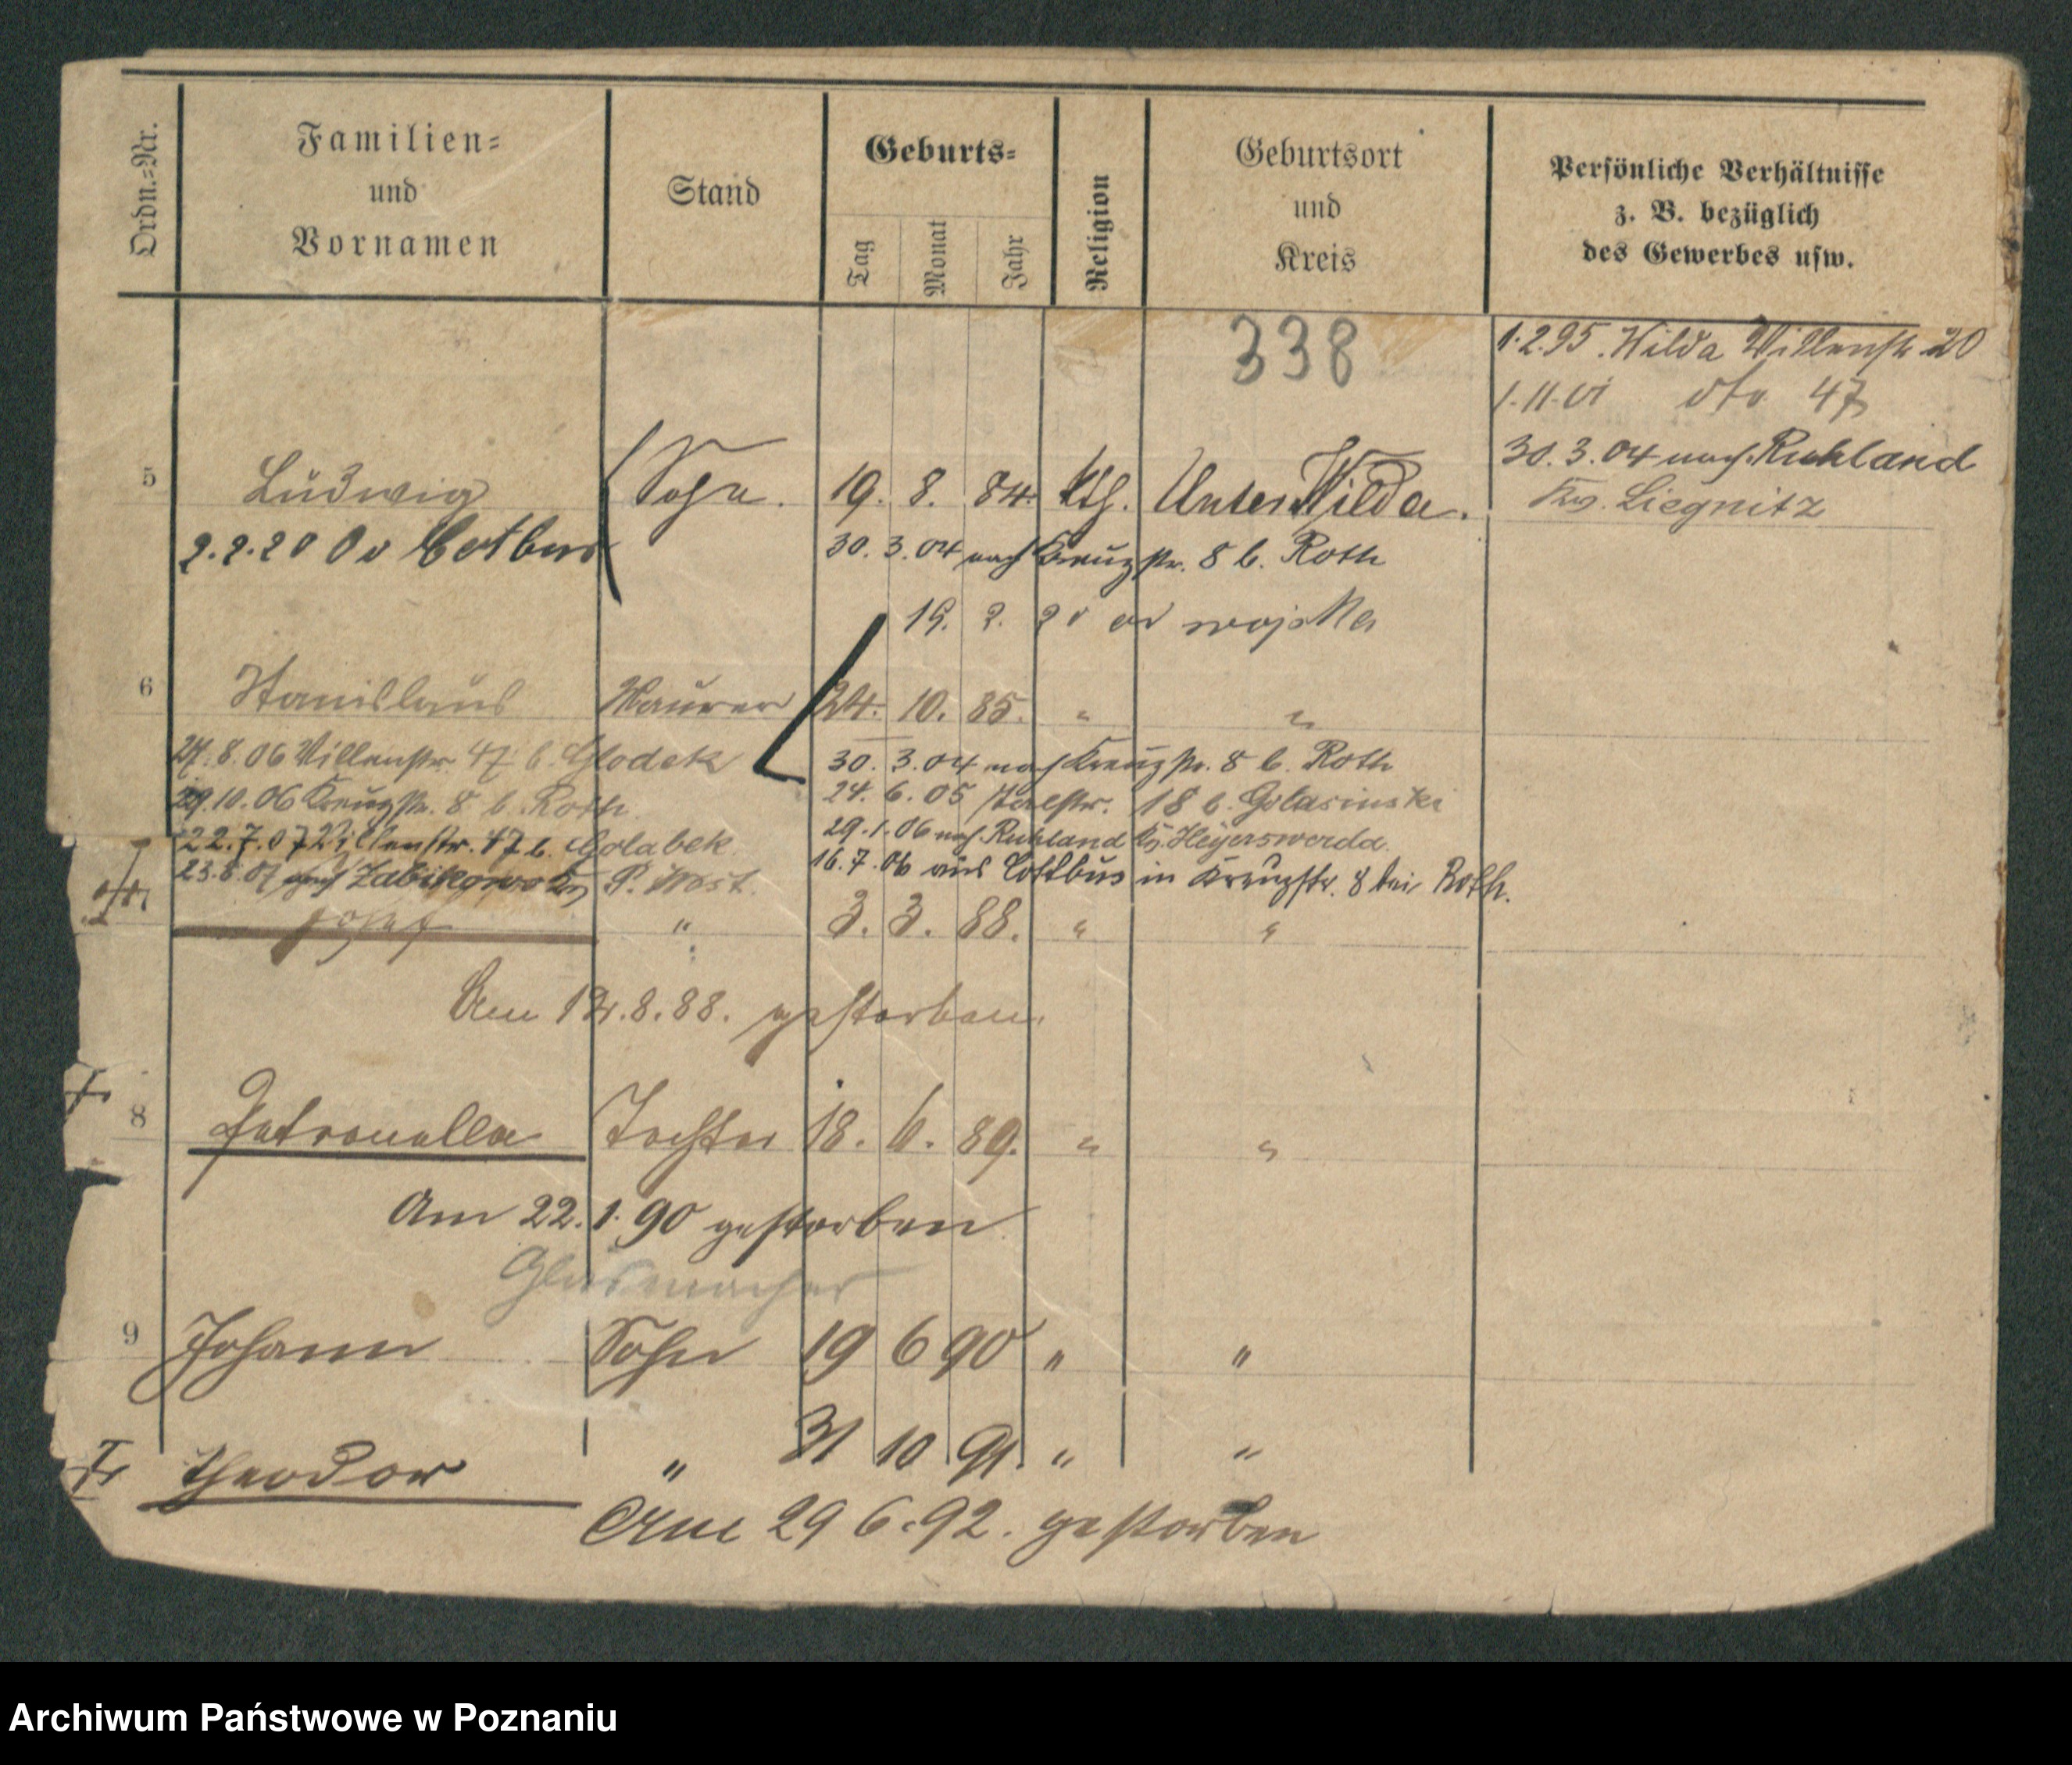 Ordn.=Nr.
Familien=
und
Vornamen
Stand
Geburts=
Tag
Monat
Jahr
Religion
Geburtsort
und
Kreis
Persönliche Verhältnisse
z. B. bezüglich
des Gewerbes usw.
338
1.2.95. Wilda Villenstr. 20
1.11.01 dto 47
30.3.04 nach Ruhland
Krs. Liegnitz
5 Ludwig Sohn. 19. 8. 84. kth. Unter Wilda.
2.2.20 Od Cotbus
30.3.04 nach Kreuzstr. 8 b. Roth
19. 2. 20 od wojska
6 Stanislaus Maurer 24. 10. 85. " "
27.8.06 Villenstr. 47 b. Glodek
30.3.04 nach Kreuzstr. 8 b. Roth
29.10.06 Kreuzstr. 8 b. Roth
24.6.05 18 b. Golasinski
22.7.07 Villenstr. 47 b. Golabek
29.1.06 nach Ruhland Kr. Heyerswerda.
23.8.07 nach Zabikowo Krs P. West.
16.7.06 aus Cottbus in Kreuzstr. 8 bei Roth.
Josef " 3. 3. 88. " "
Am 12.8.88. gestorben.
8 Petronella Tochter 18. 6. 89. " "
Am 22.1.90 gestorben
Glasmacher
9 Johann Sohn 19 6 90 " "
Theodor " 31 10 91. " "
Am 29 6.92. gestorben
Archiwum Państwowe w Poznaniu